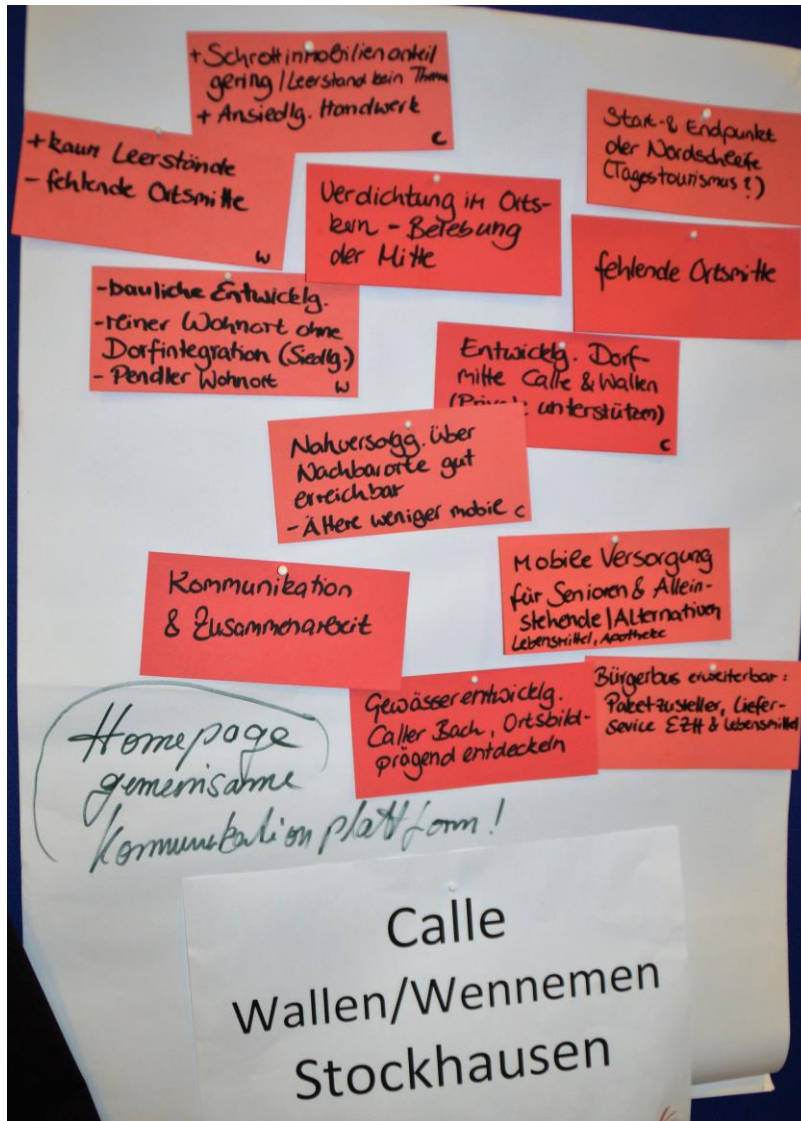 + Schrottimmobilienanteil
gering / Leerstand kein Thema
+ Ansiedlg. Handwerk
C
+ kaum Leerstände
- fehlende Ortsmitte
W
Verdichtung im Orts-
kern - Belebung
der Mitte
Start- & Endpunkt
der Nordschleife
(Tagestourismus?)
fehlende Ortsmitte
- bauliche Entwicklg.
- reiner Wohnort ohne
Dorfintegration (Siedlg.)
- Pendler Wohnort
W
Entwicklg. Dorf-
mitte Calle & Wallen
(Private unterstützen)
C
Nahversorgg. über
Nachbarorte gut
erreichbar
- Ältere weniger mobil C
Kommunikation
& Zusammenarbeit
Mobile Versorgung
für Senioren & Allein-
stehende / Alternativen
Lebensmittel, Apotheke
Gewässerentwicklg.
Caller Bach, Ortsbild-
prägend entdeckeln
Bürgerbus erweiterbar:
Paketzusteller, Liefer-
sevice EZH & Lebensmittel
Homepage
gemeinsame
Kommunikation plattform!
Calle
Wallen/Wennemen
Stockhausen